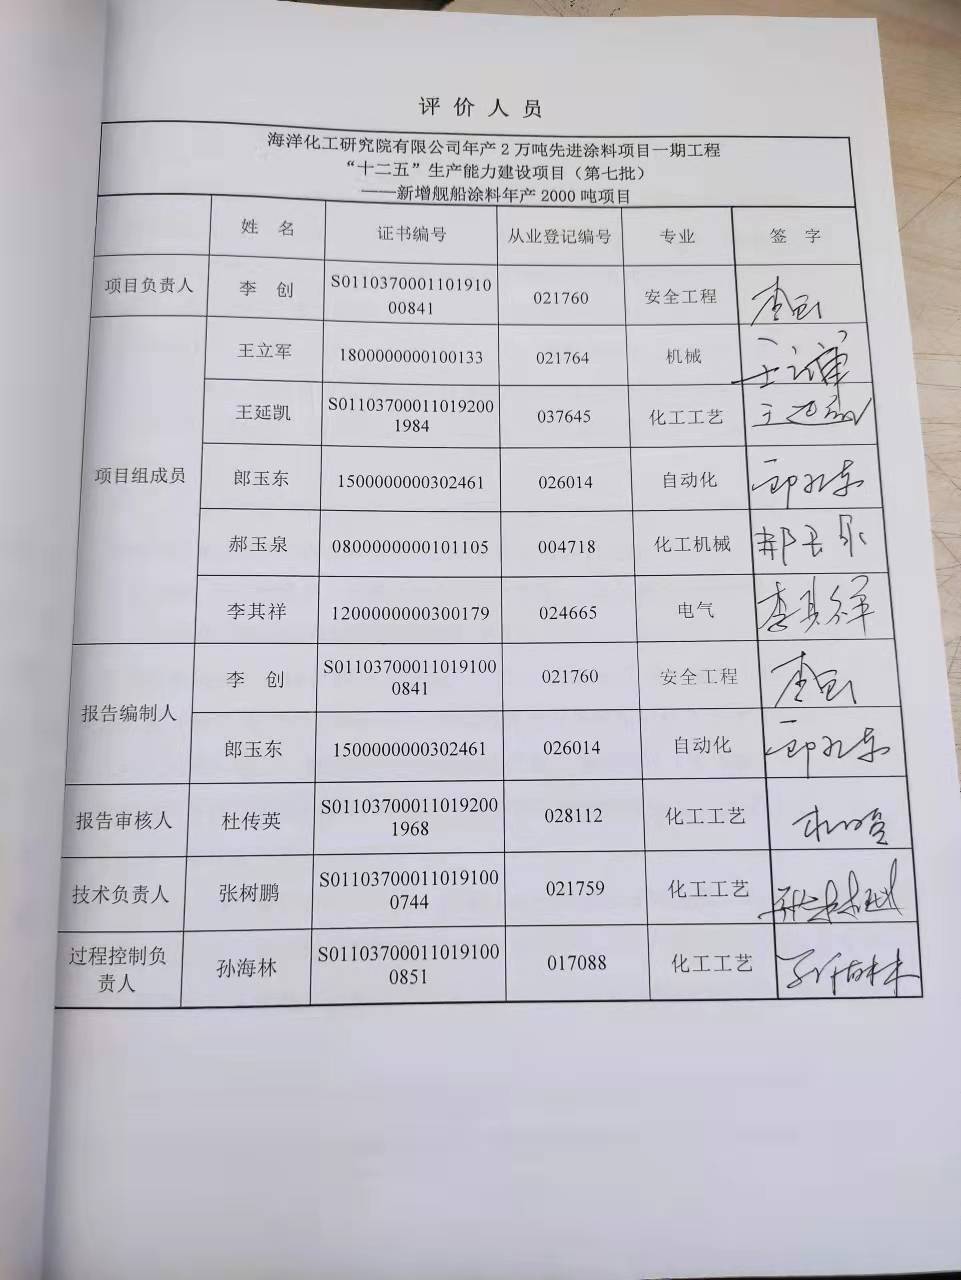 评价人员
海洋化工研究院有限公司年产2万吨先进涂料项目一期工程
“十二五”生产能力建设项目（第七批）
——新增舰船涂料年产2000吨项目
姓 名 证书编号 从业登记编号 专业 签 字
项目负责人 李 创 S0110370001101910 00841 021760 安全工程 李创
项目组成员
王立军 1800000000100133 021764 机械 王立军
王延凯 S01103700011019200 1984 037645 化工工艺 王延凯
郎玉东 1500000000302461 026014 自动化 郎玉东
郝玉泉 0800000000101105 004718 化工机械 郝玉泉
李其祥 1200000000300179 024665 电气 李其祥
报告编制人
李 创 S01103700011019100 0841 021760 安全工程 李创
郎玉东 1500000000302461 026014 自动化 郎玉东
报告审核人 杜传英 S01103700011019200 1968 028112 化工工艺
技术负责人 张树鹏 S01103700011019100 0744 021759 化工工艺
过程控制负
责人 孙海林 S01103700011019100 0851 017088 化工工艺 孙海林